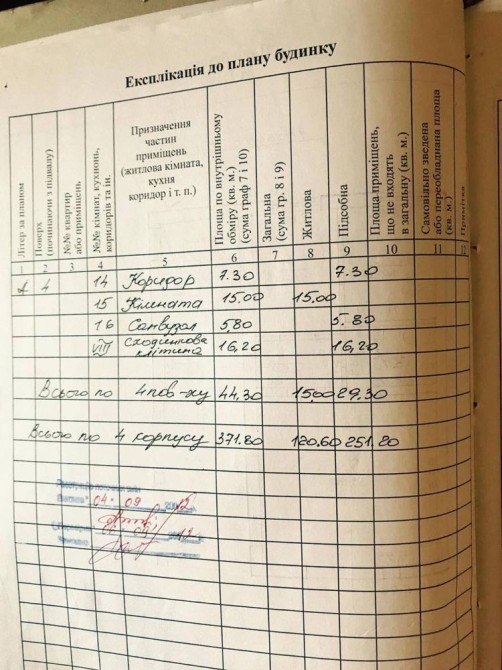 Експлікація до плану будинку
Літер за планом
Поверх (починаючи з підвалу)
№№ квартир або приміщень
№№ кімнат, кухонь, коридорів та ін.
Призначення частин приміщень (житлова кімната, кухня коридор і т. п.)
Площа по внутрішньому обміру (кв. м.) (сума граф 7 і 10)
Загальна (сума гр. 8 і 9)
Житлова
Підсобна
Площа приміщень, що не входять в загальну (кв. м.)
Самовільно зведена або переобладнана площа (кв. м.)
1 2 3 4 5 6 7 8 9 10 11
4 14 Коридор 7.30 7.30
15 Кімната 15.00 15.00
16 Санвузол 5.80 5.80
VIII Сходинкова клітина 16,20 16,20
Всього по 4 пов-ху 44,30 15,00 29,30
Всього по 4 корпусу 371.80 120.60 251.20
04 09